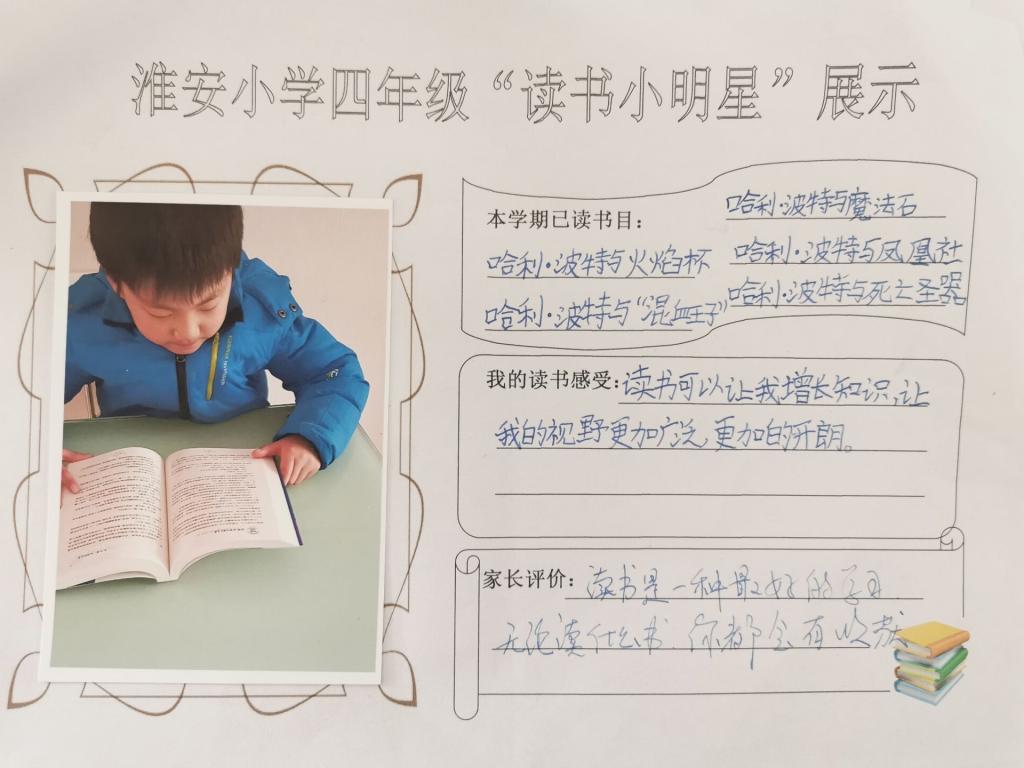 淮安小学四年级“读书小明星”展示
本学期已读书目：
哈利·波特与魔法石
哈利·波特与火焰杯
哈利·波特与凤凰社
哈利·波特与“混血王子”
哈利·波特与死亡圣器
我的读书感受：读书可以让我增长知识，让
我的视野更加广泛，更加的开朗。
家长评价：读书是一种最好的学习
无论读什么书，你都会有收获